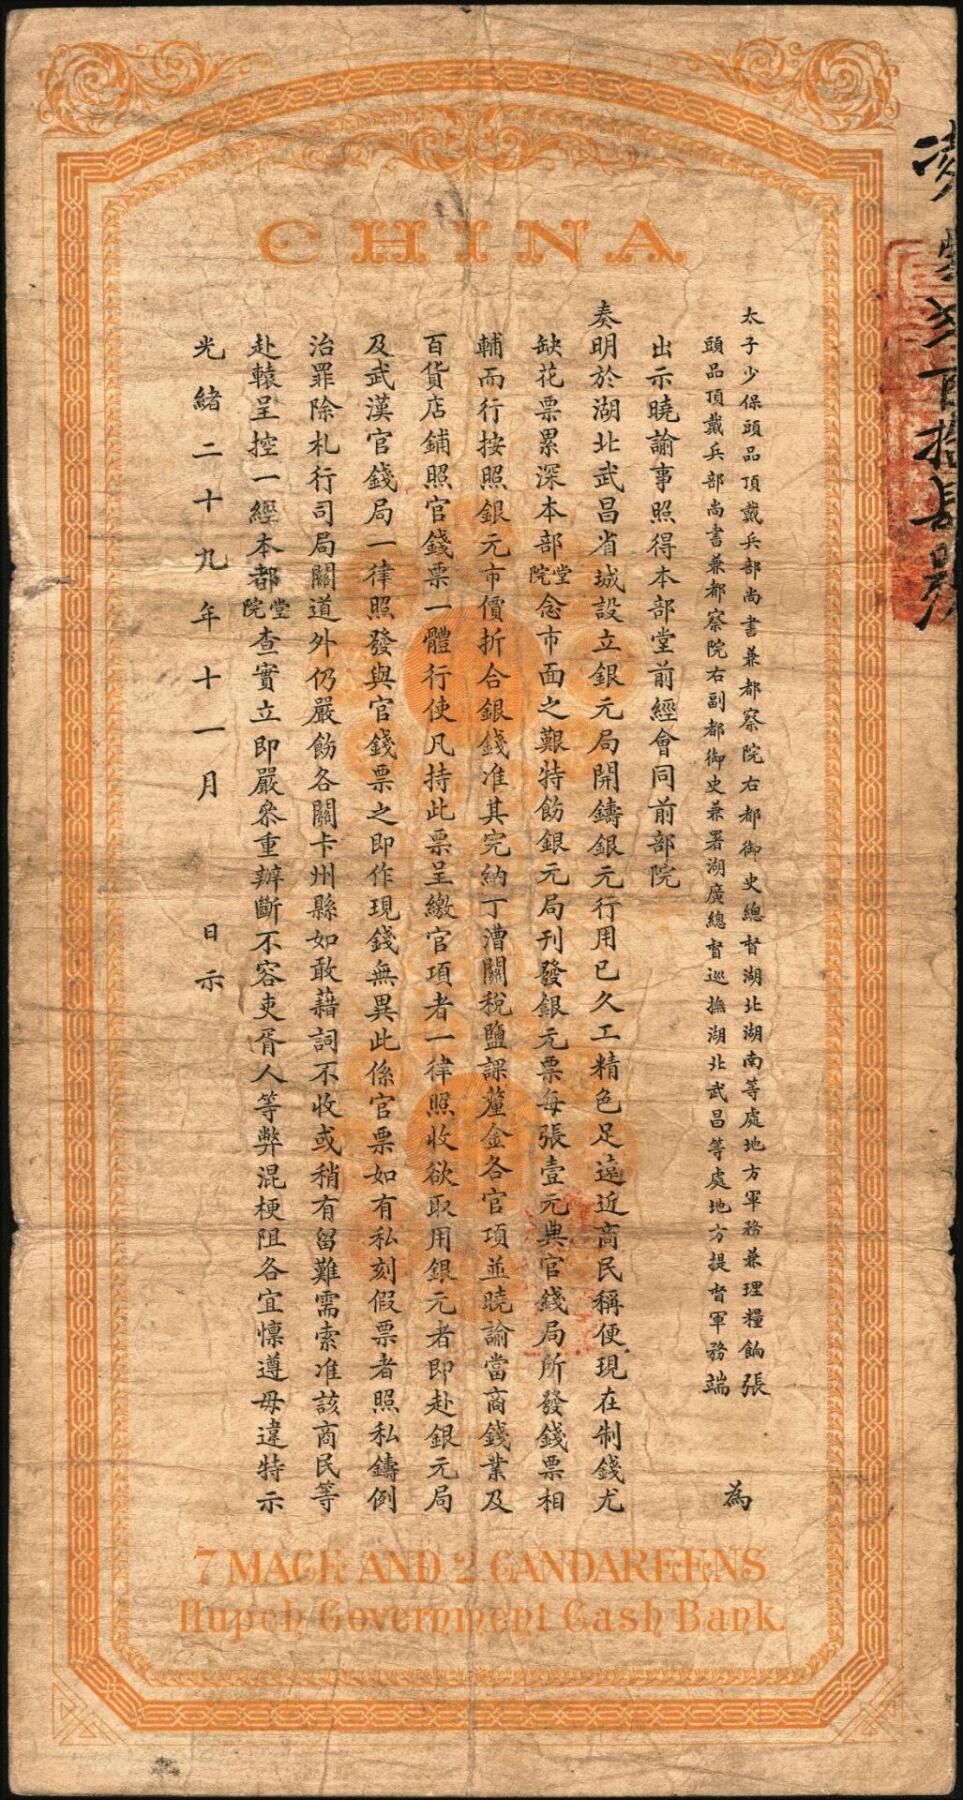 CHINA
太子少保頭品頂戴兵部尚書兼都察院右都御史總督湖北湖南等處地方軍務兼理糧餉張
頭品頂戴兵部尚書兼都察院右副都御史兼署湖廣總督巡撫湖北武昌等處地方提督軍務端
為
出示曉諭事照得本部堂前經會同前部院
奏明於湖北武昌省城設立銀元局開鑄銀元行用已久工精色足遠近商民稱便現在制錢尤
缺花票累深本部堂院念市面之艱特飭銀元局刊發銀元票每張壹元與官錢局所發錢票相
輔而行按照銀元市價折合銀錢准其完納丁漕關稅鹽課釐金各官項並曉諭當商錢業及
百貨店鋪照官錢票一體行使凡持此票呈繳官項者一律照收欲取用銀元者即赴銀元局
及武漢官錢局一律照發與官錢票之即作現錢無異此係官票如有私刻假票者照私鑄例
治罪除札行司局關道外仍嚴飭各關卡州縣如敢藉詞不收或稍有留難需索准該商民等
赴轅呈控一經本都堂院查實立即嚴參重辦斷不容吏胥人等弊混梗阻各宜懍遵毋違特示
光緒二十九年十一月 日示
7 MACE AND 2 CANDAREENS
Hupeh Government Cash Bank.